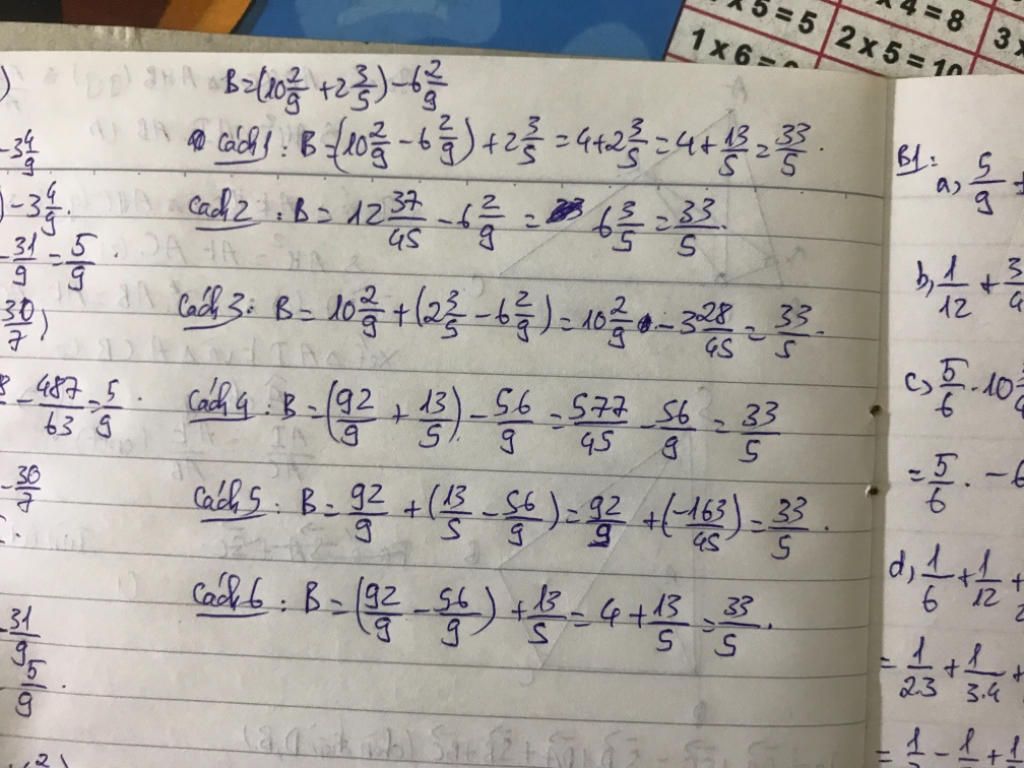 x 5 = 5
x 4 = 8
1 x 6 =
2 x 5 = 10
3 x
B = (10 2/9 + 2 3/5) - 6 2/9
Cách 1 : B = (10 2/9 - 6 2/9) + 2 3/5 = 4 + 2 3/5 = 4 + 13/5 = 33/5 .
Cách 2 : B = 12 37/45 - 6 2/9 = 6 3/5 = 33/5 .
Cách 3 : B = 10 2/9 + (2 3/5 - 6 2/9) = 10 2/9 - 3 28/45 = 33/5 .
Cách 4 : B = (92/9 + 13/5) - 56/9 = 577/45 - 56/9 = 33/5
Cách 5 : B = 92/9 + (13/5 - 56/9) = 92/9 + (-163/45) = 33/5 .
Cách 6 : B = (92/9 - 56/9) + 13/5 = 4 + 13/5 = 33/5 .
)
- 3 4/9
) - 3 4/9 .
- 31/9 = 5/9 .
30/7 )
- 487/63 = 5/9 .
- 30/7
- 31/9
5/9 .
B1 :
a, 5/9 +
b, 1/12 + 3/4
c, 5/6 - 10
= 5/6 . - 6
d, 1/6 + 1/12 +
= 1/2.3 + 1/3.4 +